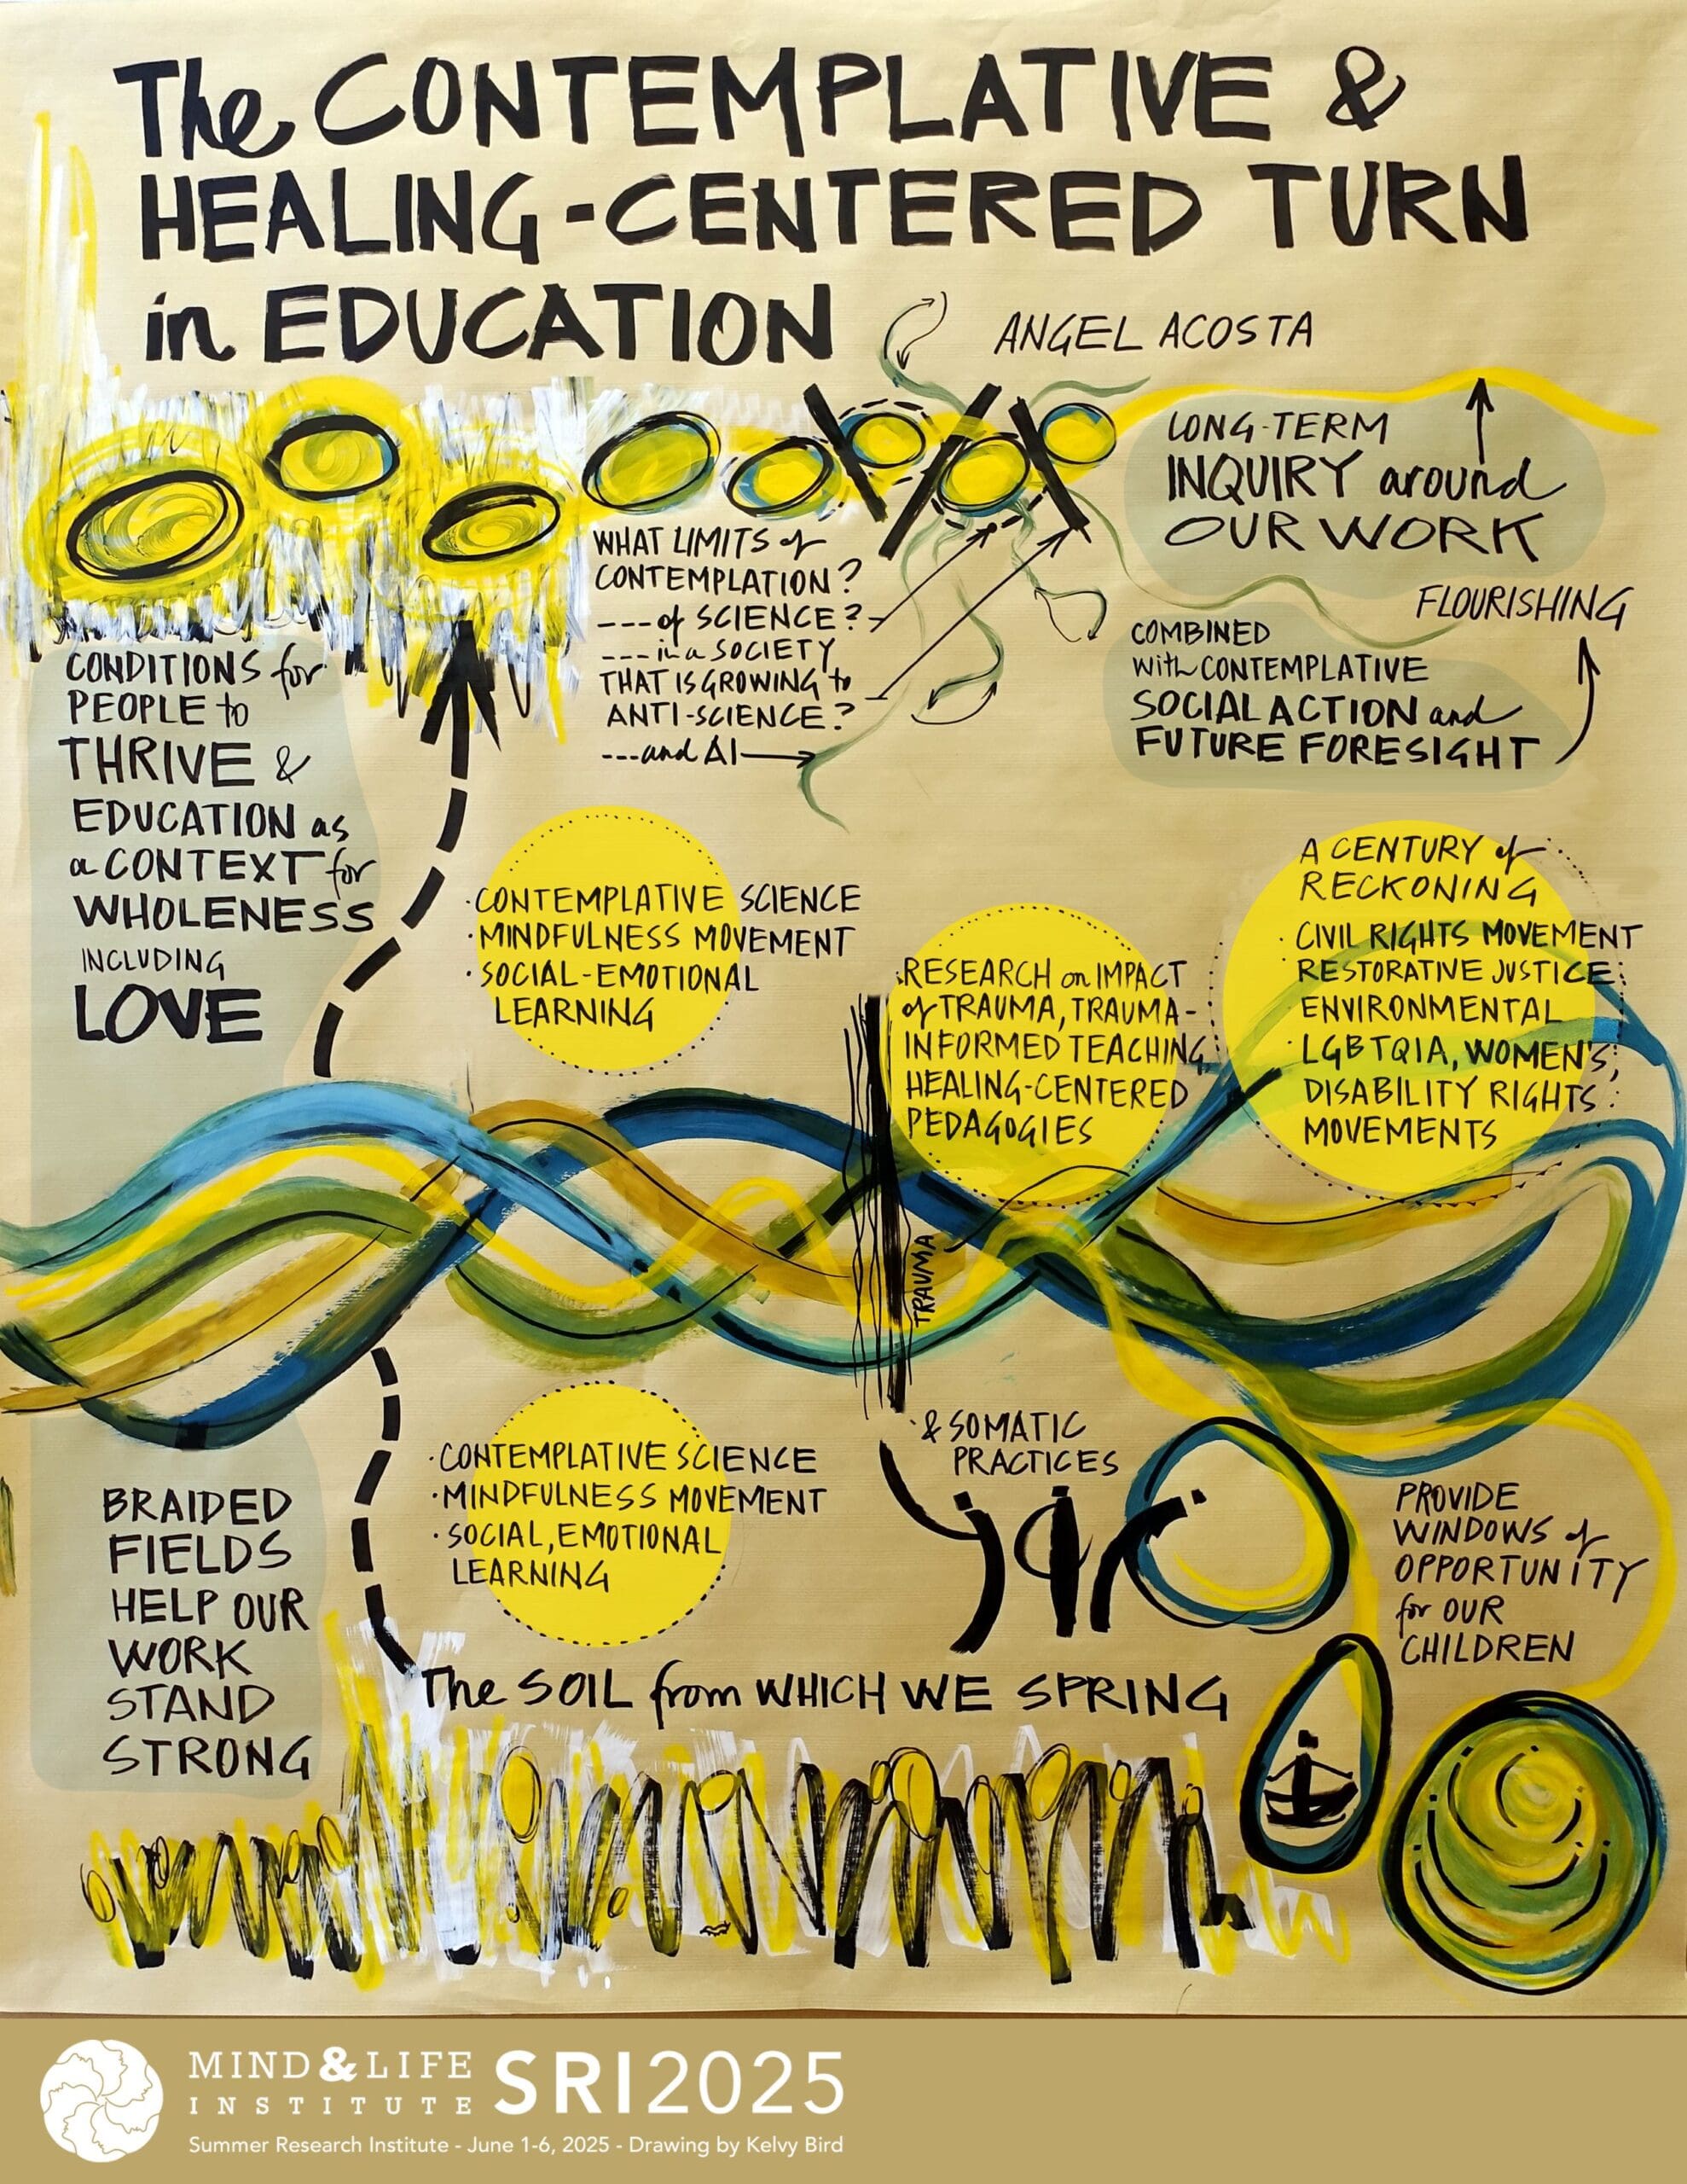 The CONTEMPLATIVE &
HEALING-CENTERED TURN
in EDUCATION
ANGEL ACOSTA
LONG-TERM
INQUIRY around
OUR WORK
FLOURISHING
COMBINED
with CONTEMPLATIVE
SOCIAL ACTION and
FUTURE FORESIGHT
WHAT LIMITS of
CONTEMPLATION?
---of SCIENCE?
---in a SOCIETY
THAT IS GROWING to
ANTI-SCIENCE?
---and AI
CONDITIONS for
PEOPLE to
THRIVE &
EDUCATION as
a CONTEXT for
WHOLENESS
INCLUDING
LOVE
· CONTEMPLATIVE SCIENCE
· MINDFULNESS MOVEMENT
· SOCIAL-EMOTIONAL
LEARNING
· RESEARCH on IMPACT
of TRAUMA, TRAUMA-
INFORMED TEACHING,
HEALING-CENTERED
PEDAGOGIES
A CENTURY of
RECKONING
· CIVIL RIGHTS MOVEMENT
· RESTORATIVE JUSTICE
ENVIRONMENTAL
· LGBTQIA, WOMEN'S,
DISABILITY RIGHTS
MOVEMENTS
TRAUMA
BRAIDED
FIELDS
HELP OUR
WORK
STAND
STRONG
· CONTEMPLATIVE SCIENCE
· MINDFULNESS MOVEMENT
· SOCIAL, EMOTIONAL
LEARNING
· & SOMATIC
PRACTICES
PROVIDE
WINDOWS of
OPPORTUNITY
for OUR
CHILDREN
The SOIL from WHICH WE SPRING
MIND&LIFE
INSTITUTE
SRI2025
Summer Research Institute - June 1-6, 2025 - Drawing by Kelvy Bird